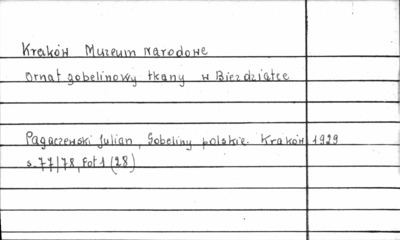 Kraków Muzeum Narodowe
ornat gobelinowy tkany w Bieździatce
Pagaczewski Julian, Gobeliny polskie. Kraków 1929
s. 77/78, Fot 1 (28)